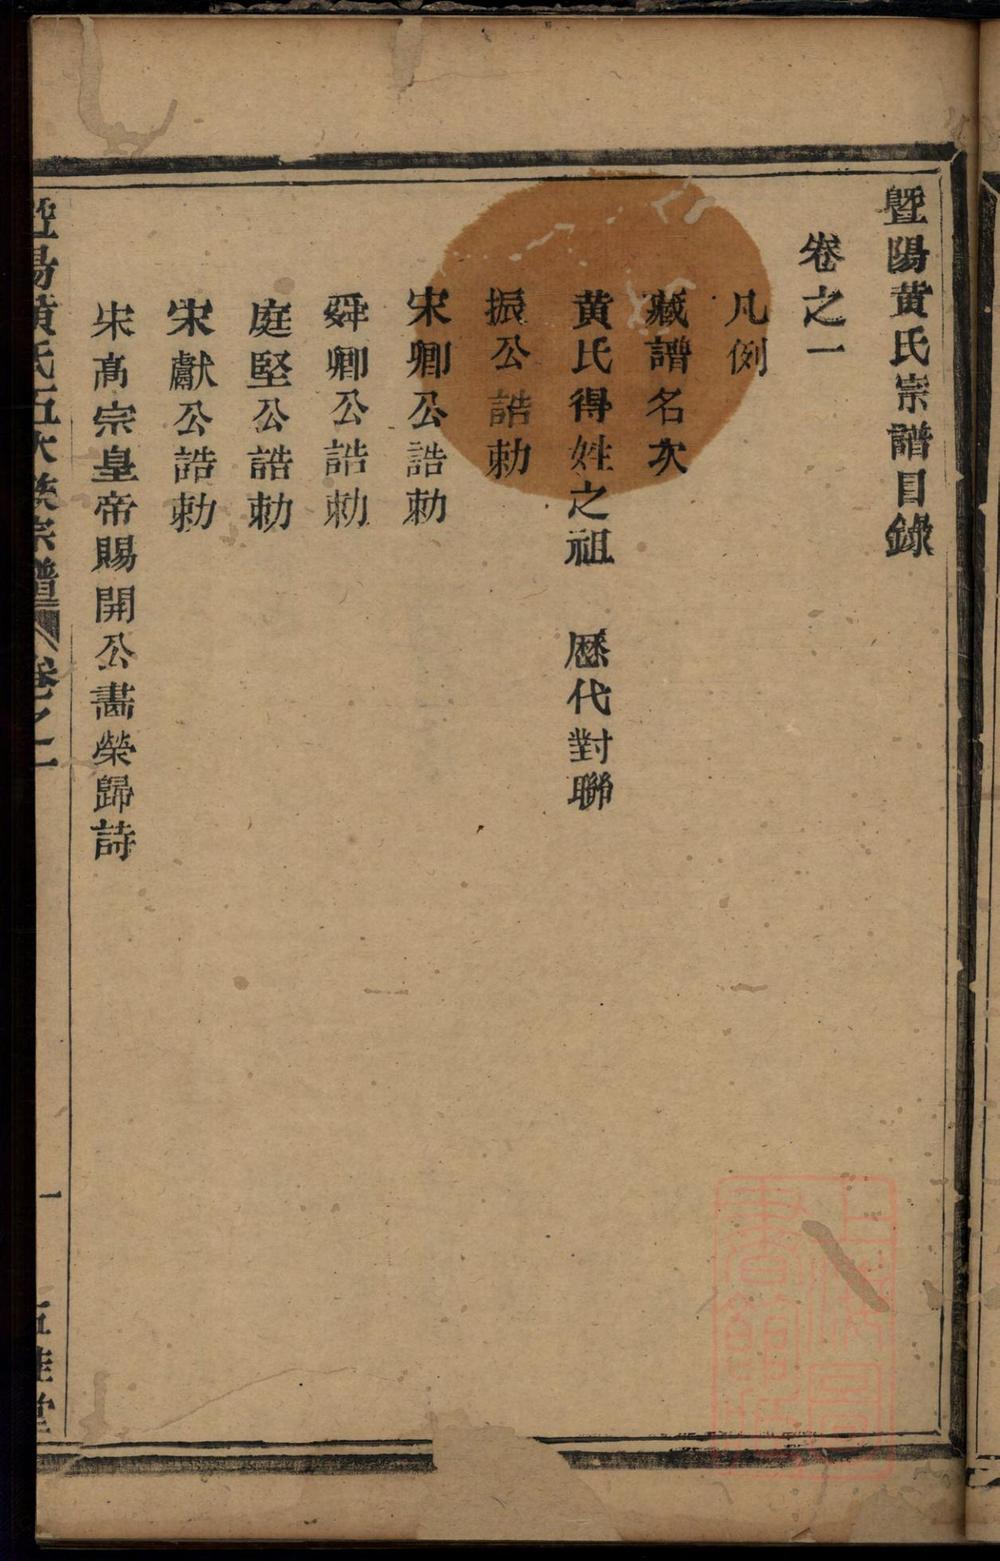 暨陽黄氏宗譜目錄
卷之一
凡例
藏譜名次
黄氏得姓之祖　歷代對聯
振公誥勅
宋卿公誥勅
舜卿公誥勅
庭堅公誥勅
宋獻公誥勅
宋髙宗皇帝賜開公晝榮歸詩
暨陽黄氏五次葺宗譜　卷之一　一　五桂堂
上海圖書館藏